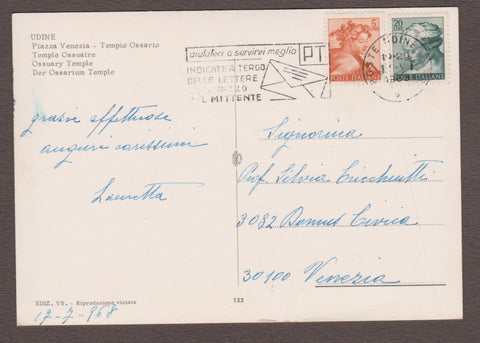 UDINE
Piazza Venezia - Tempio Ossario
Temple Ossuaire
Ossuary Temple
Der Ossarium Temple
aiutateci a servirvi meglio
PT
INDICATE A TERGO
DELLE LETTERE
MITTENTE
5
POSTE ITALIANE
20 LIRE
POSTE ITALIANE
POSTE UDINE
grazie affettuose
auguri carissimi
Lauretta
Signorina
Prof. Silvia
3032
30100 Venezia
EDIZ. VS. - Riproduzione vietata
133
17-7-968